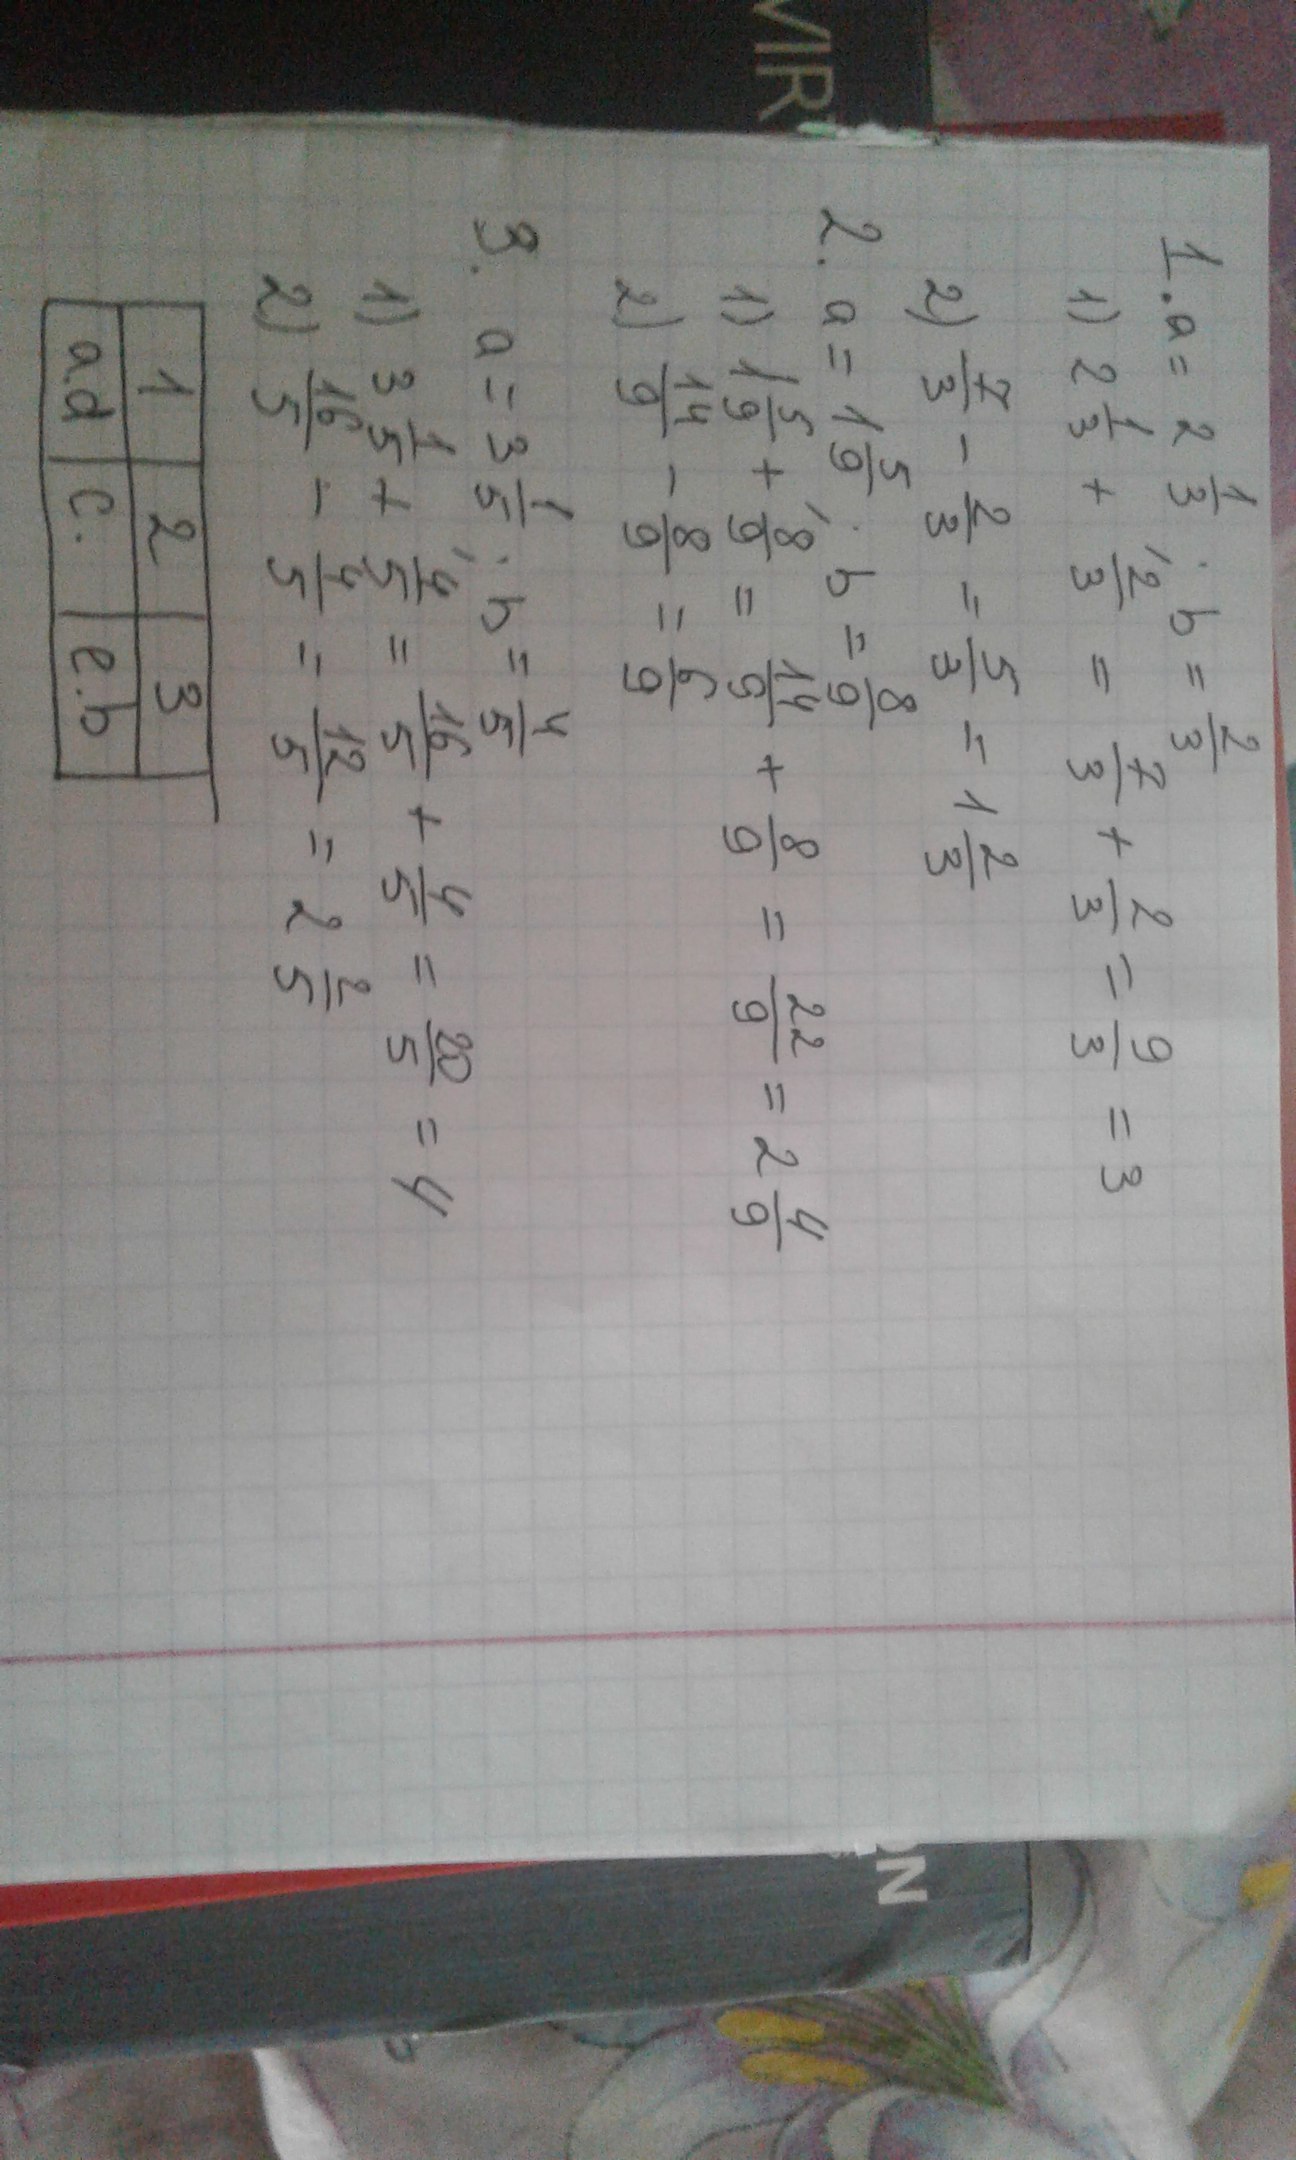 1. a = 2 1/3 ; b = 2/3
1) 2 1/3 + 2/3 = 7/3 + 2/3 = 9/3 = 3
2) 7/3 - 2/3 = 5/3 = 1 2/3
2. a = 1 5/9 ; b = 8/9
1) 1 5/9 + 8/9 = 14/9 + 8/9 = 22/9 = 2 4/9
2) 14/9 - 8/9 = 6/9
3. a = 3 1/5 ; b = 4/5
1) 3 1/5 + 4/5 = 16/5 + 4/5 = 20/5 = 4
2) 16/5 - 4/5 = 12/5 = 2 2/5
1 2 3
a.d c. e.b
VIR
ON